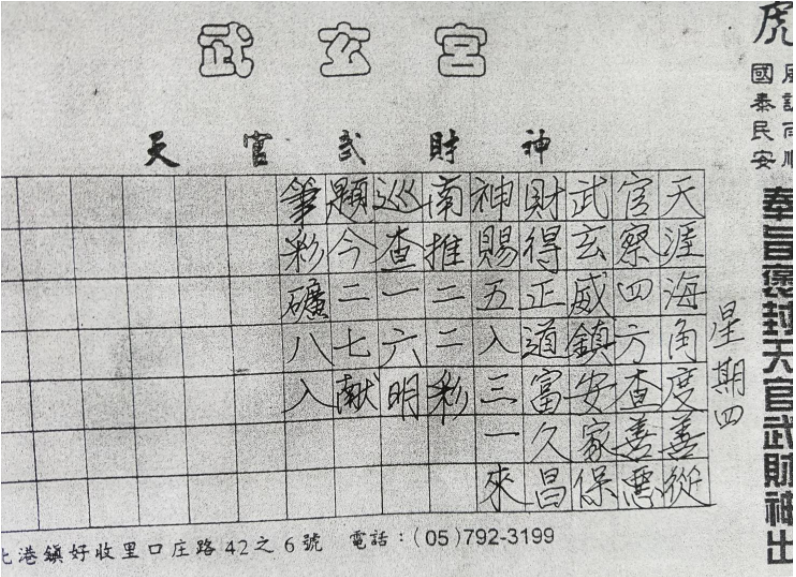 武玄宮
天官武財神
虎
國泰民安
奉旨褒封天官武財神出
星期四
天涯海角度善從
官察四方查善惡
武玄威鎮安家保
財得正道富久昌
神賜五入三一來
南推二二彩
巡查一六明
顯今二七献
筆彩礦八入
港鎮好收里口庄路42之6號 電話：(05)792-3199